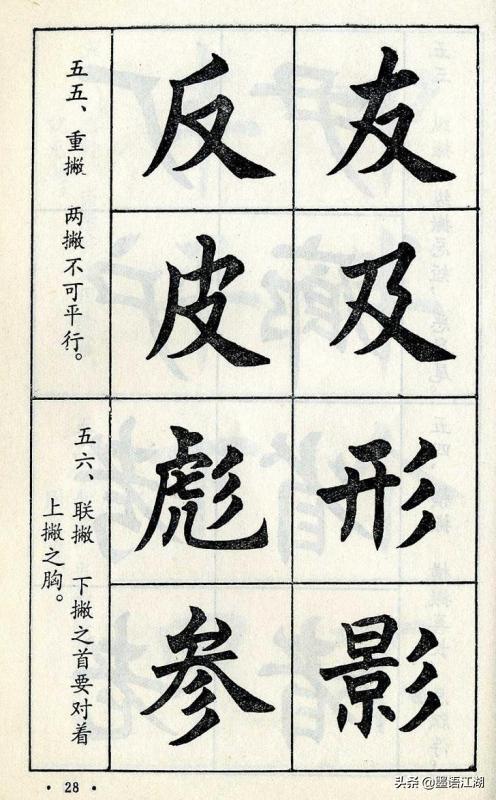 五五、重撇 两撇不可平行。
反友
皮及
五六、联撇 下撇之首要对着
上撇之胸。
彪形
参影
·28·
头条@墨语江湖